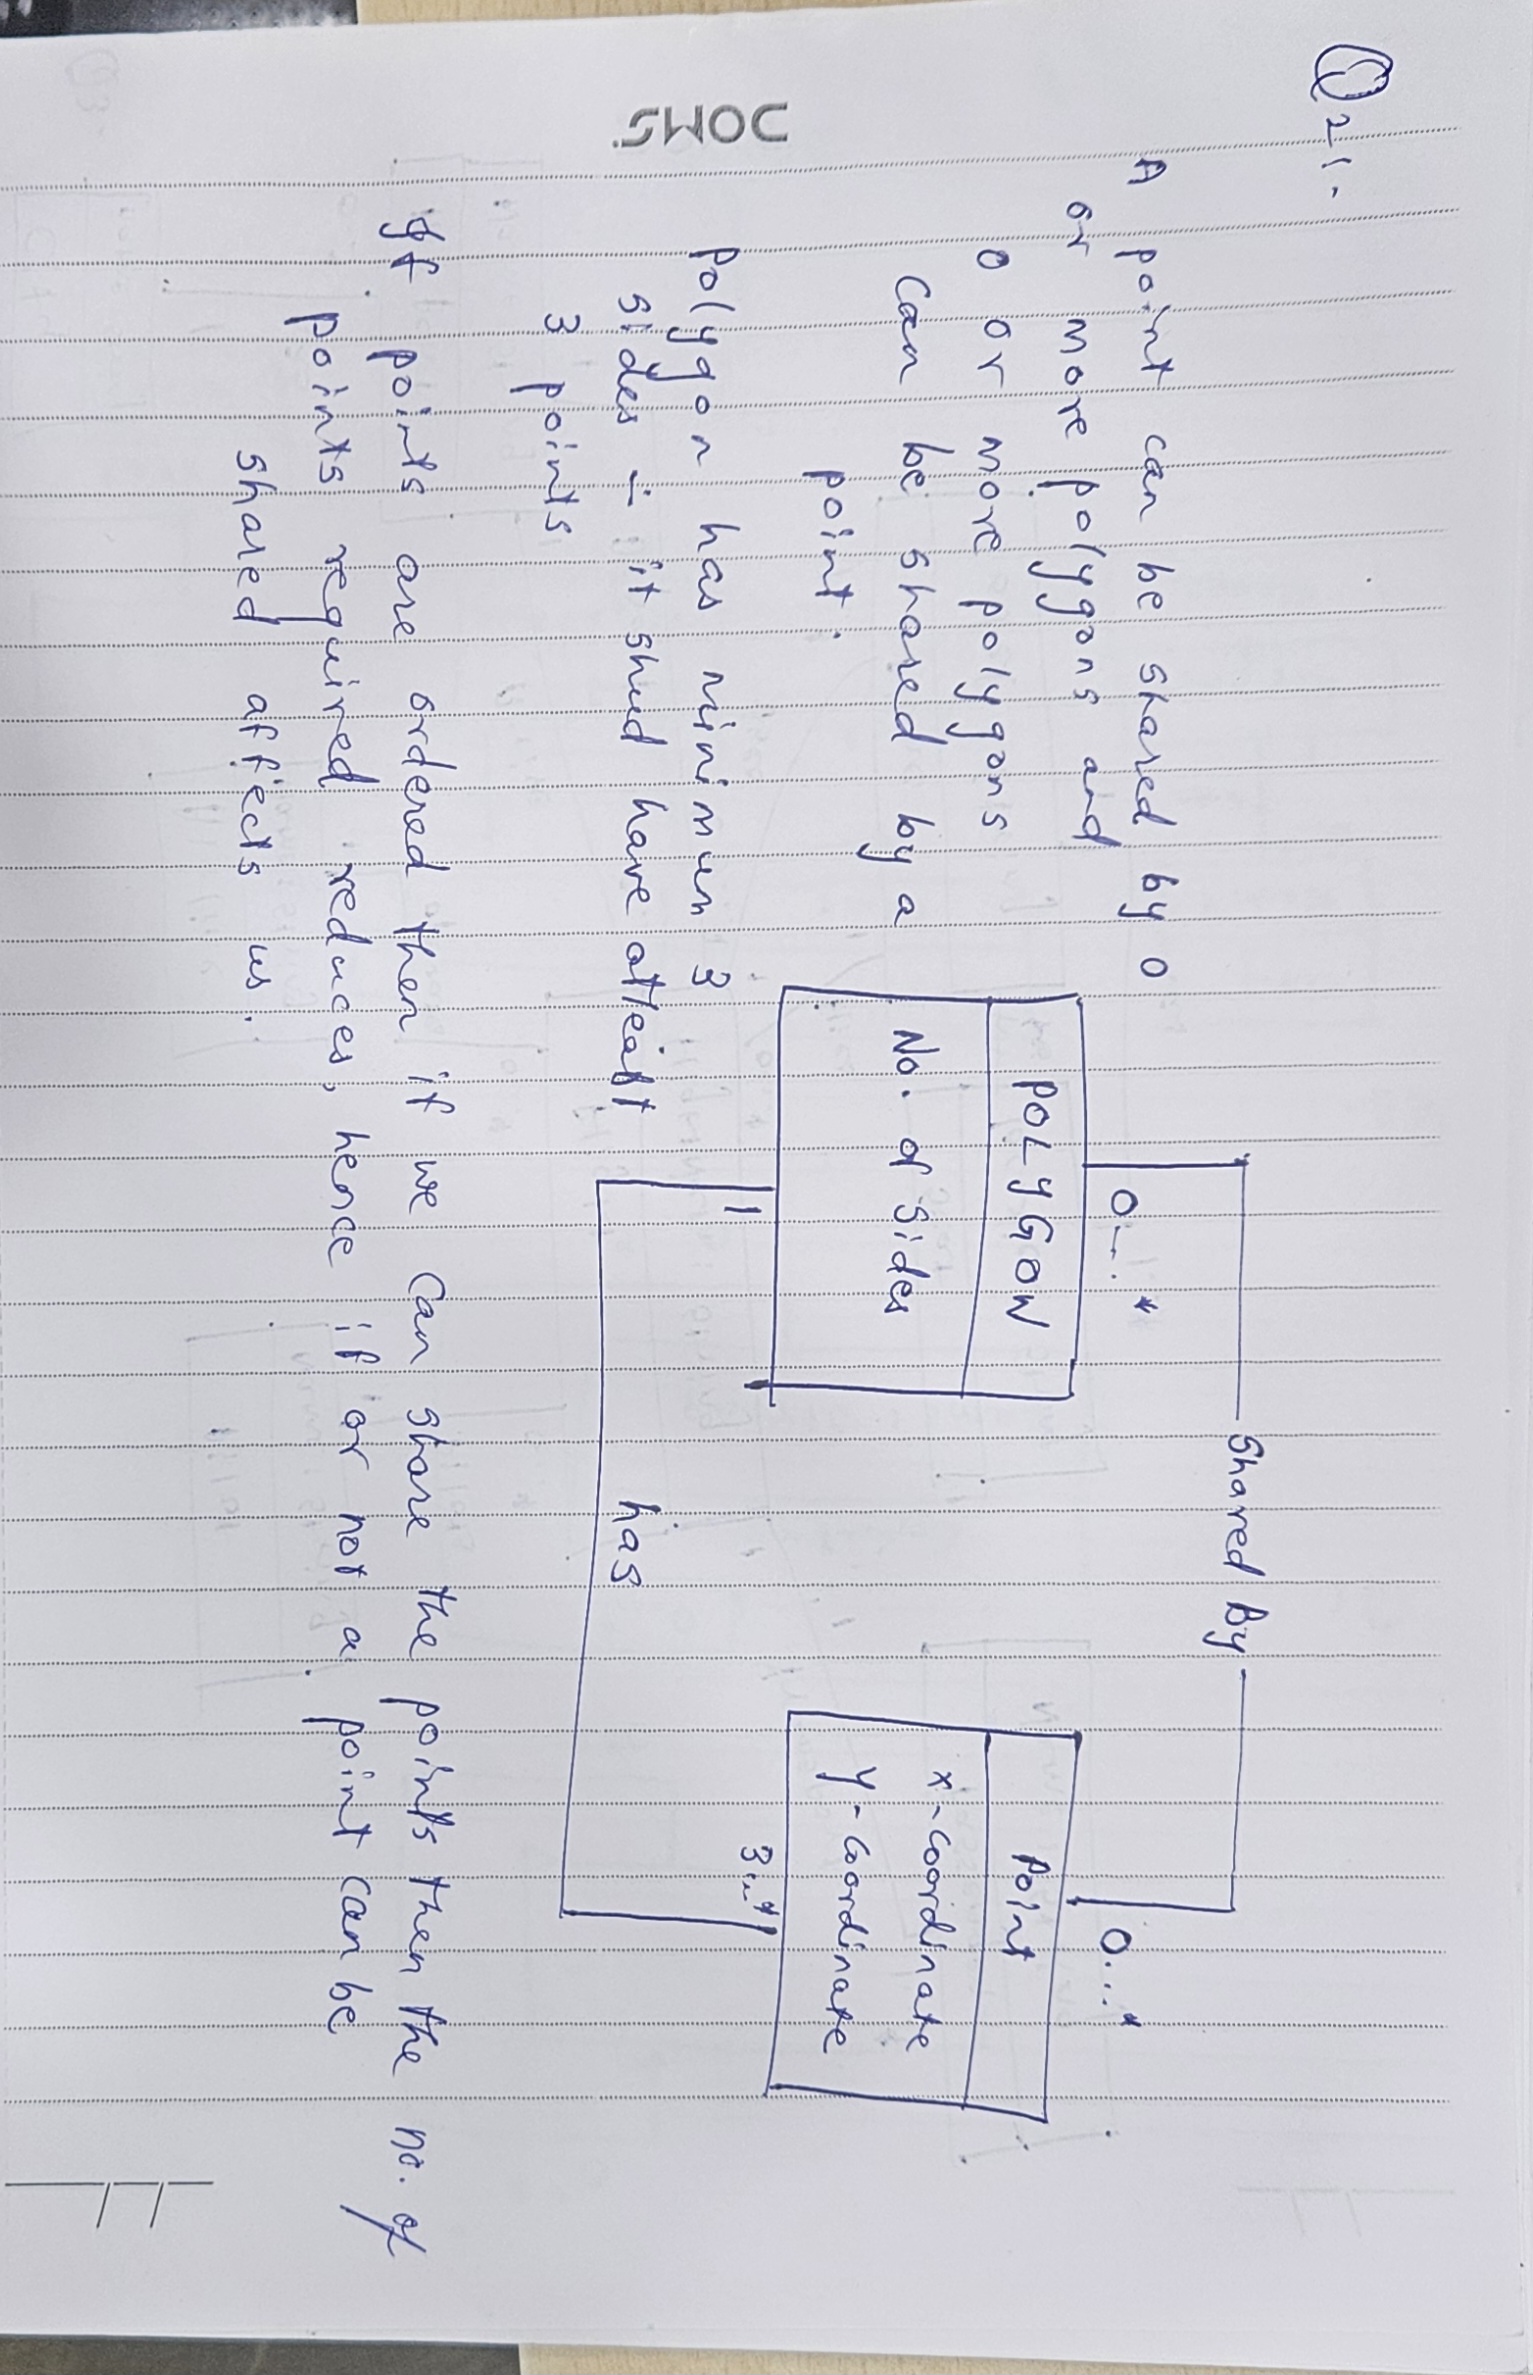 Q21.
A point can be shared by 0
or more polygons and
0 or more polygons
can be shared by a
point.
polygon has minimum 3
sides ∴ it shud have atleast
3 points
Shared By
0...*
0...*
POLYGON
No. of Sides
Point
x-coordinate
y-coordinate
1
3...*
has
If points are ordered then if we can share the points then the no. of
points required reduces, hence if or not a point can be
shared affects us.
DOMS